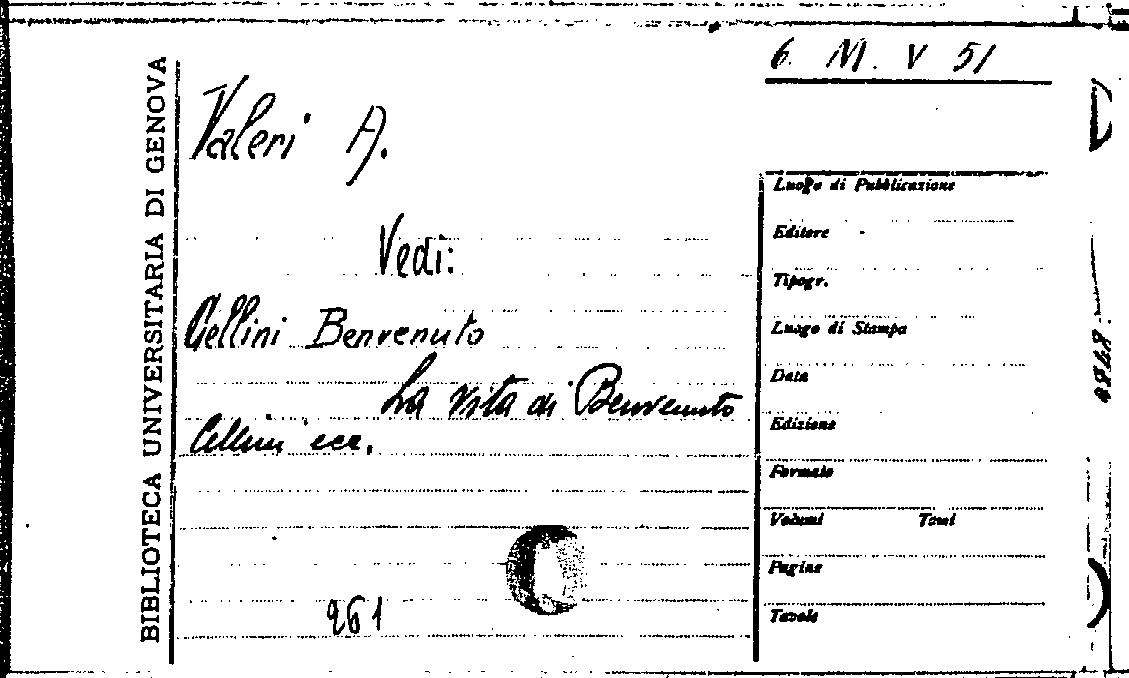 6. M. V 51
BIBLIOTECA UNIVERSITARIA DI GENOVA
Valeri A.
Vedi:
Cellini Benvenuto
La vita di Benvenuto
Cellini ecc.
261
Luogo di Pubblicazione
Editore
Tipogr.
Luogo di Stampa
Data
Edizione
Formato
Volumi Tomi
Pagine
Tavole